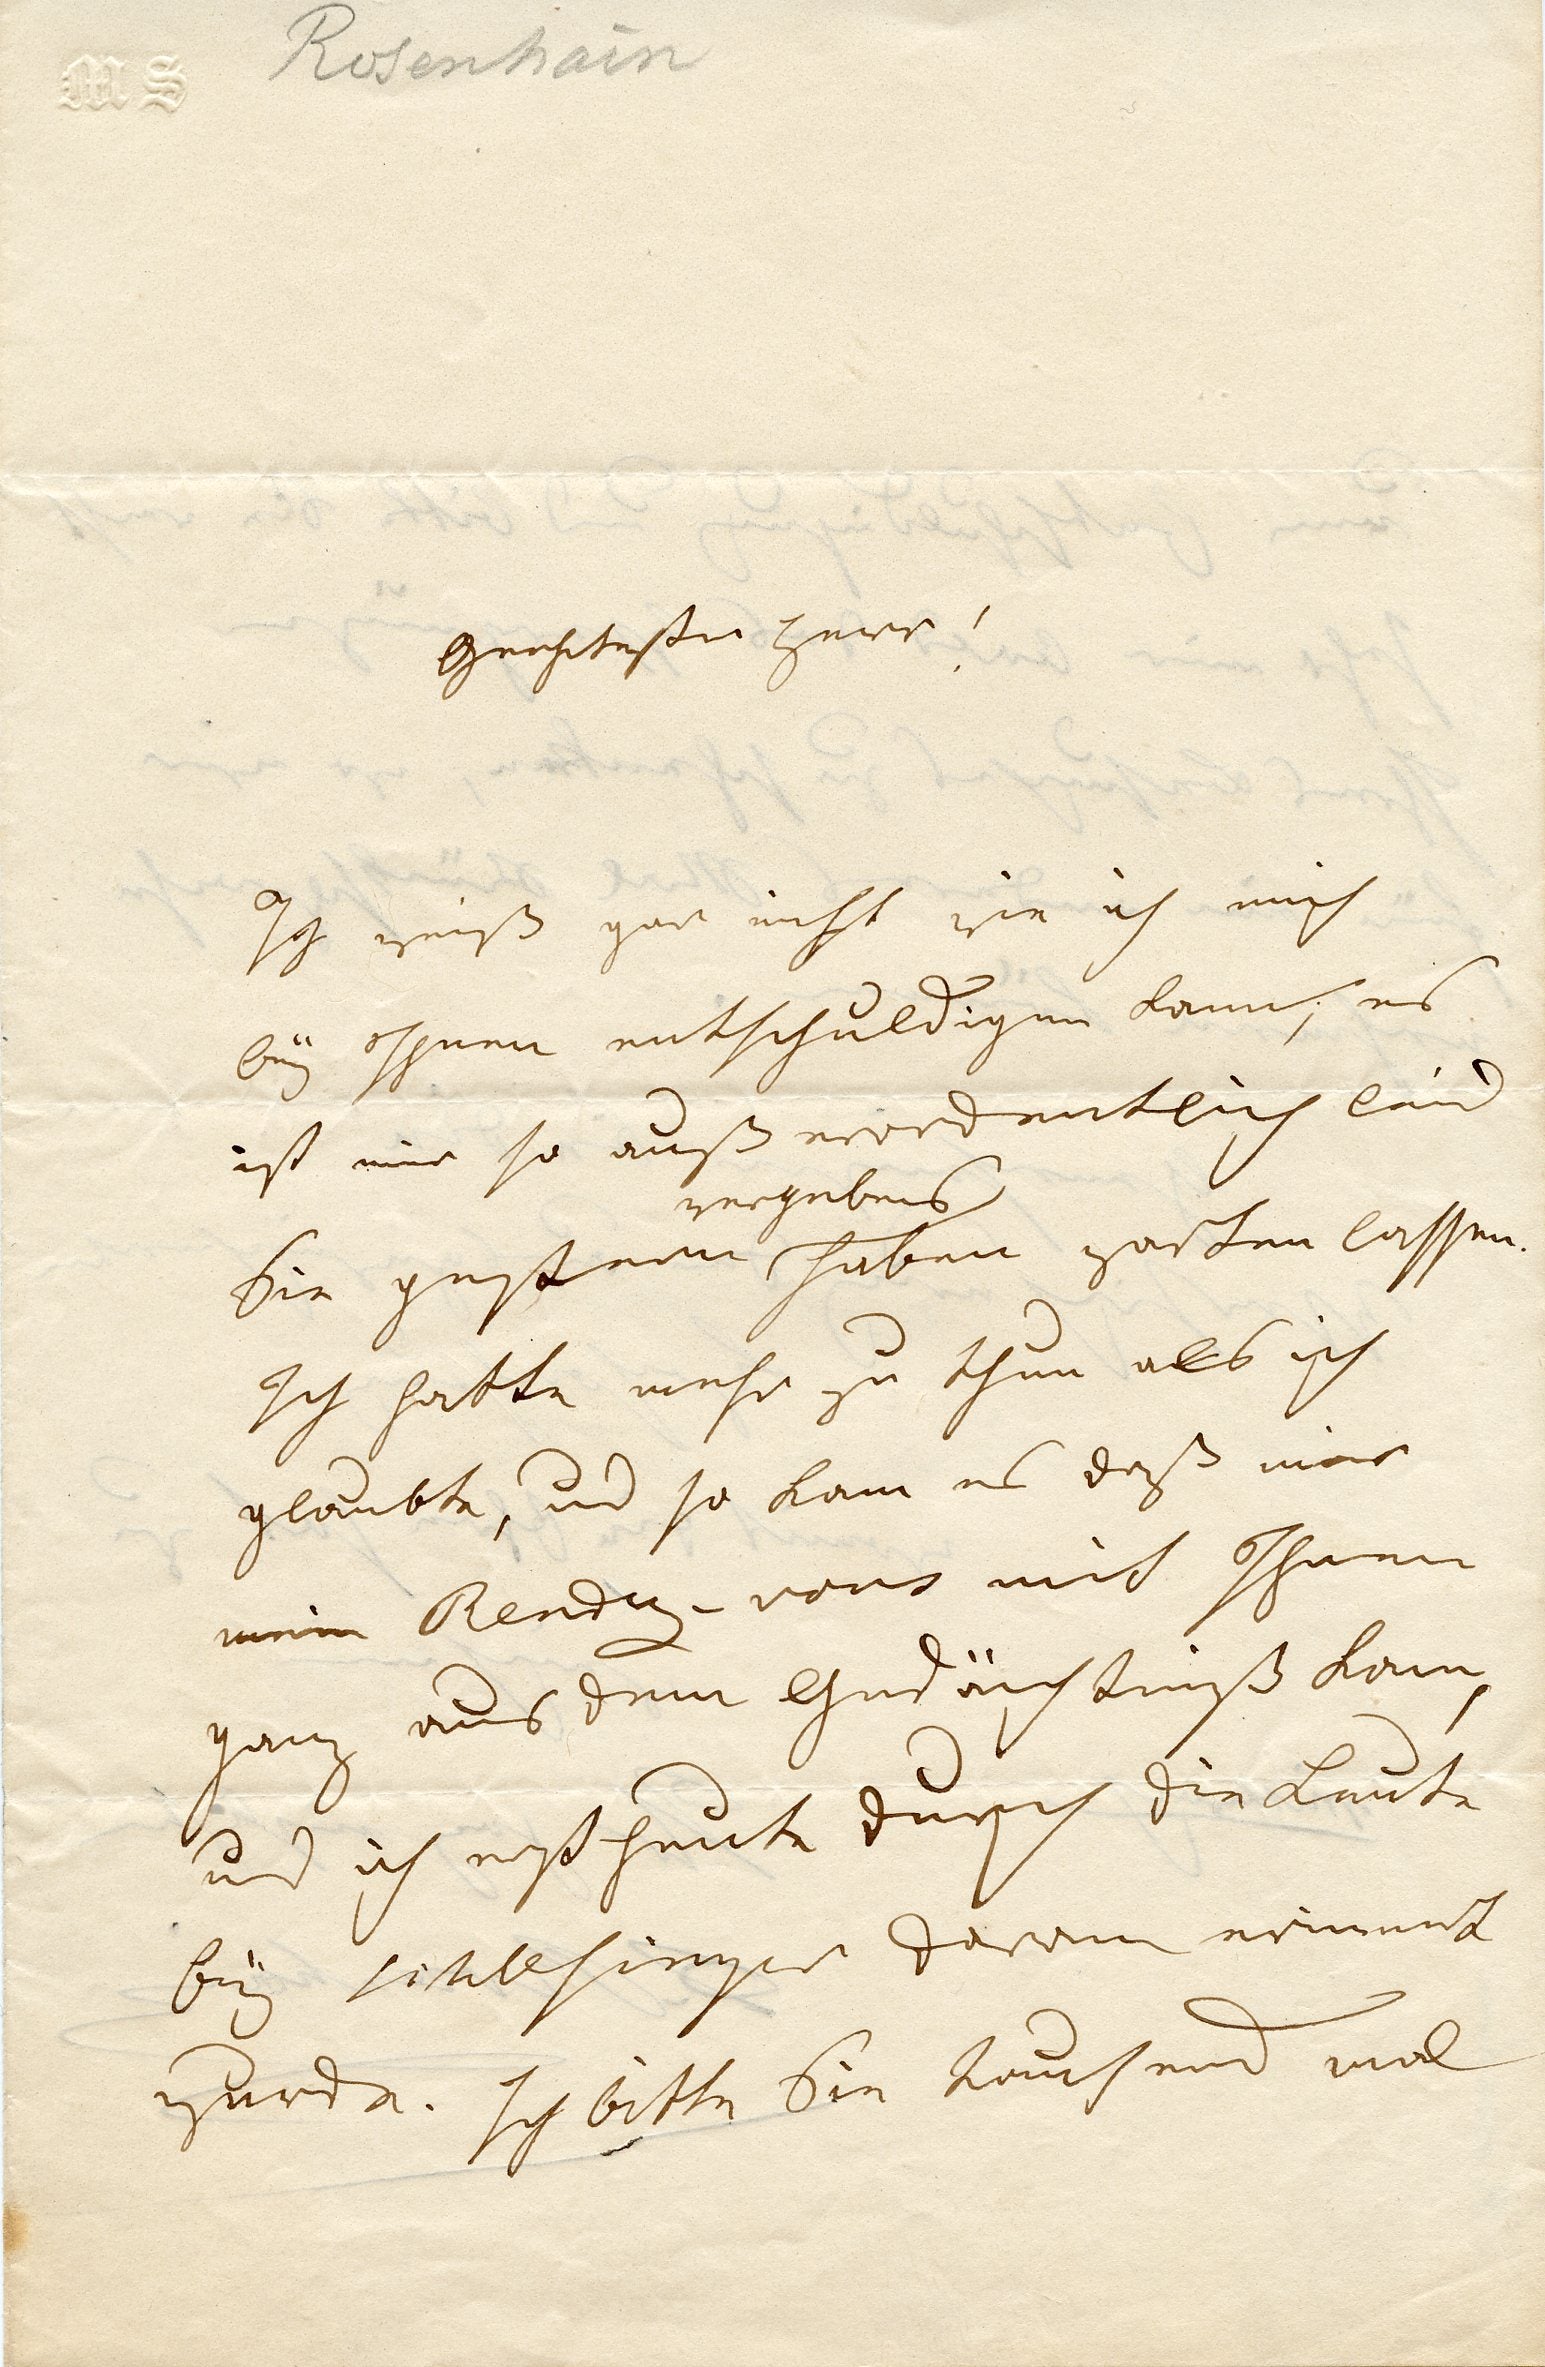 MS
Rosenhain
Geehrtester Herr!
Ich weiß gar nicht wie ich mich
beÿ Ihnen entschuldigen kann, es
ist mir so außerordentlich leid
vergebens
Sie gestern haben warten lassen.
Ich hatte mehr zu thun als ich
glaubte, und so kam es daß mir
mein Rendez-vous mit Ihnen
ganz aus dem Gedächtniß kam,
und ich erst heute durch die Leute
beÿ Schlesinger daran erinnert
wurde. Ich bitte Sie tausend mal